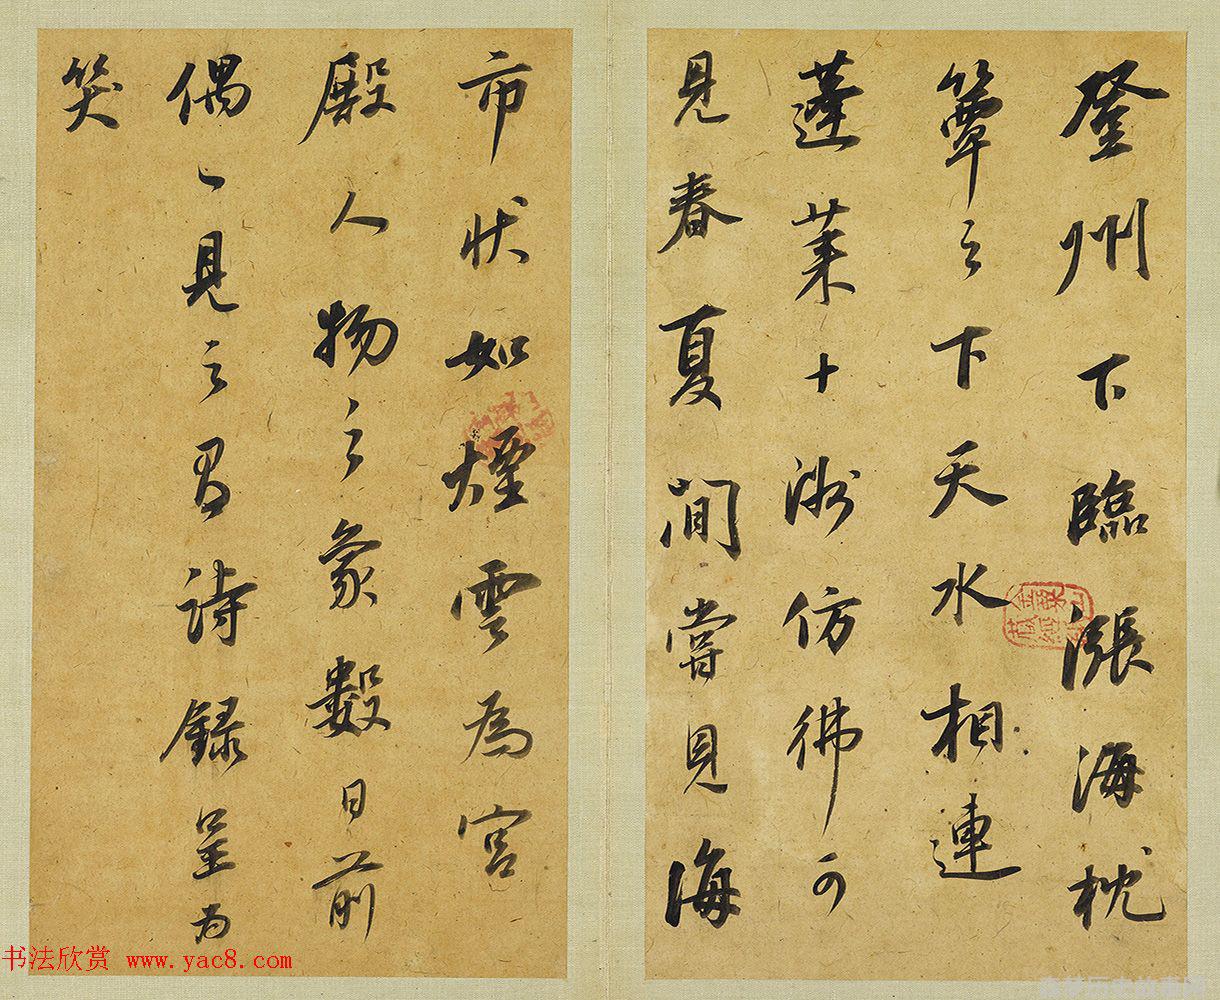 登州下臨漲海枕
簟之下天水相連
蓬萊十洲仿彿可
見春夏間嘗見海
市狀如煙雲為宮
殿人物之象數日前
偶一見之有詩錄呈為
笑
金粟山藏經紙
书法欣赏 www.yac8.com